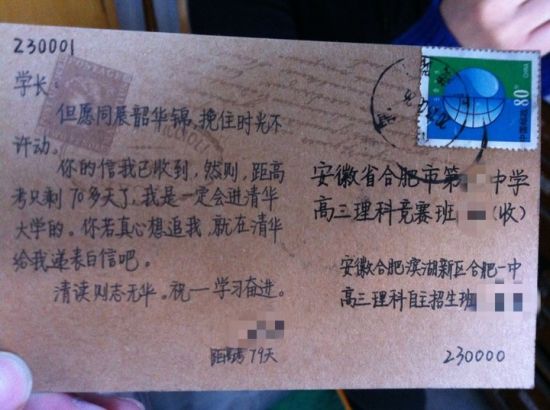 230001
学长:
但愿同展韶华锦,挽住时光不
许动。
你的信我已收到,然则,距高
考只剩70多天了,我是一定会进清华
大学的。你若真心想追我,就在清华
给我递表白信吧。
清读则志无华。祝一学习奋进。
距高考79天
80
安徽省合肥市第 中学
高三理科竞赛班 (收)
安徽合肥滨湖新区合肥一中
高三理科自主招生班
230000